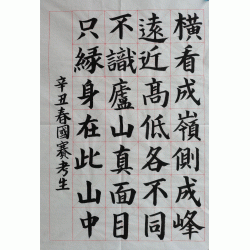 橫看成嶺側成峰
遠近髙低各不同
不識廬山真面目
只緣身在此山中
辛丑春國賽考生